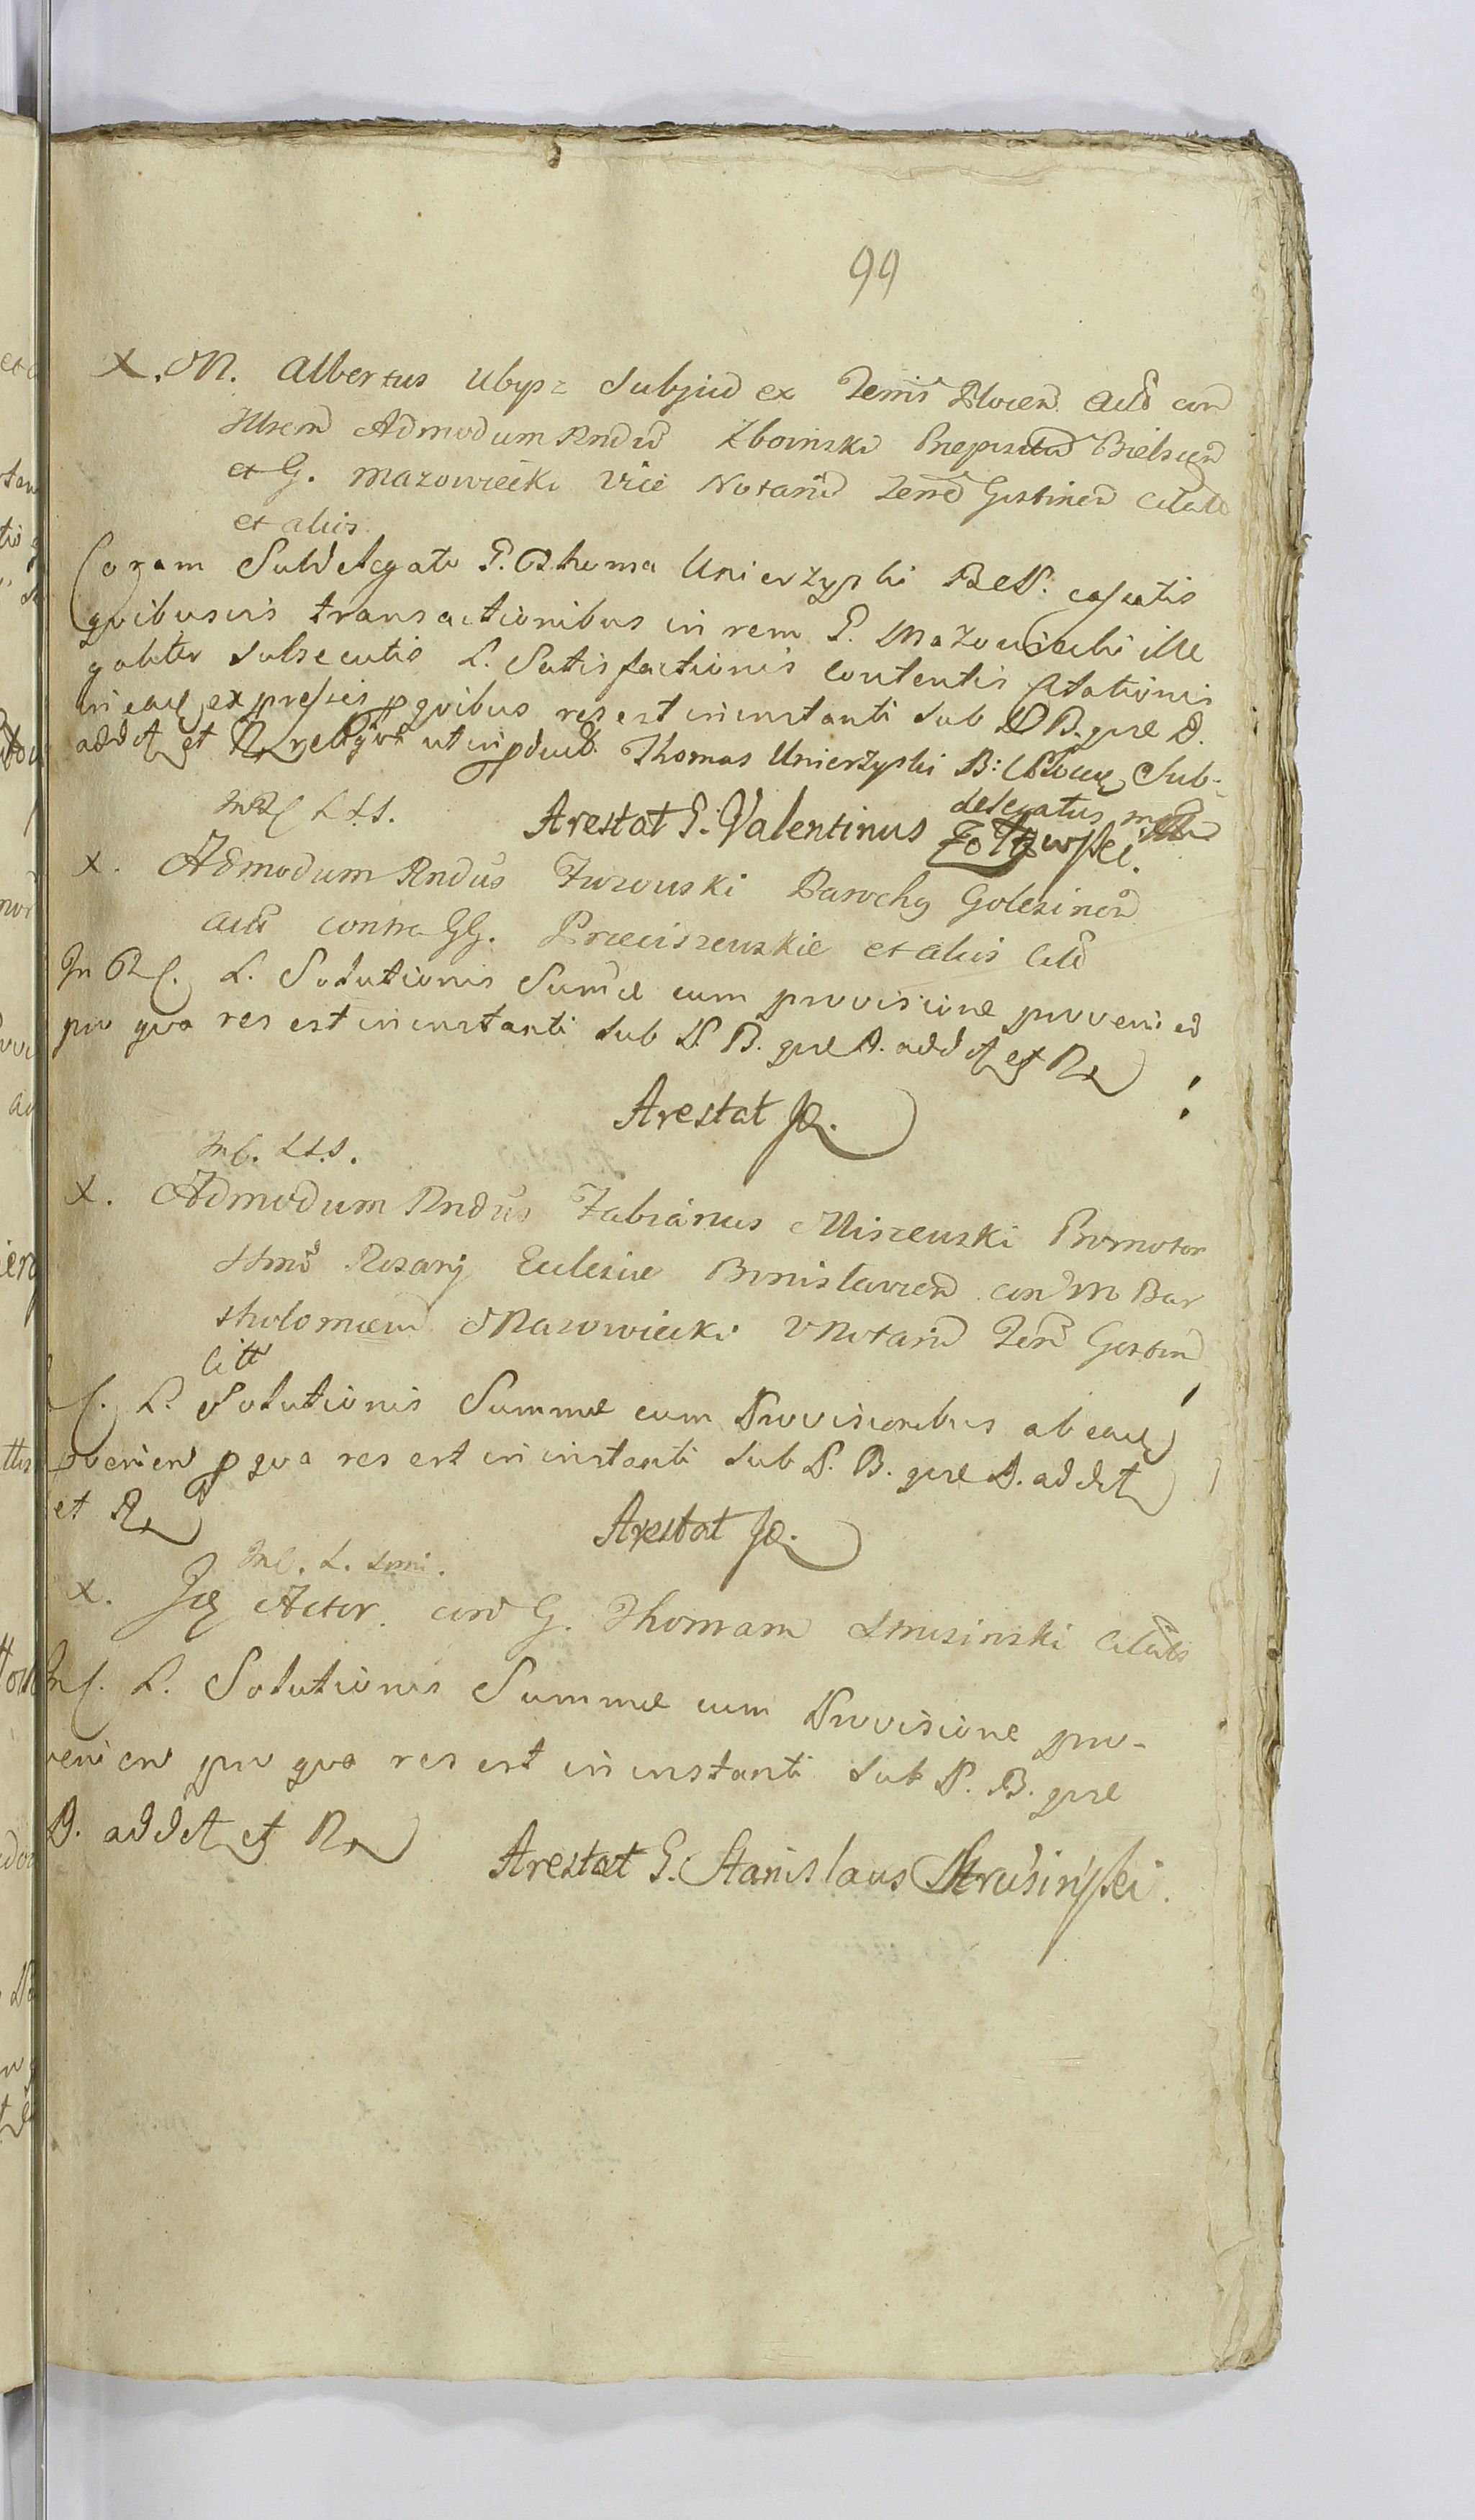 99
X. M. Albertus Ubysz Subjud ex Terris Plocen Act con
Illrem Admodum Rndum Zboinski Prepositum Bielscen
et G. Mazowiecki Vice Notarium Terre Gostinen Citato
et aliis
Coram Subdelegato G. Thoma Unierzyski B. N. cassatis
quibusvis transactionibus in rem G. Mazowiecki ille
galiter subsecutis L. Satisfactionis contentis Citationis
in eaq expressis p quibus res est in instanti sub P. B. que D.
addet et R ut in pduct. Thomas Unierzyski B: Subdelegatus mp
L. L. S.
Arestat G. Valentinus Zołtowski.
x. Admodum Rndus Zurowski Parochg Golesinen
Act contra GG. Przeciszewskie et aliis Citt
In C. L. Solutionis Summe cum provisione provenien
pro qva res est in instanti sub P. B. que D. addet et R
Arestat Jd.
In C. L. L. S.
x. Admodum Rndus Fabianus Miszewski Promotor
Ssmi Rosarij Ecclesiae Bonislavien con M Bar
tholomeum Mazowiecki V Notarium Terre Gostin
Citt
C. L. Solutionis Summe cum Provisionibus ab eaq
pvenien p qva res est in instanti sub P. B. que D. addet
et R
Arestat Jd.
In C. L. Smi.
x. Jdq Actor con G. Thomam Strusinski Citato
In C. L. Solutionis Summe cum Provisione pro-
venien pro qva res est in instanti sub P. B. que
D. addet et R
Arestat G. Stanislaus Strusiński.